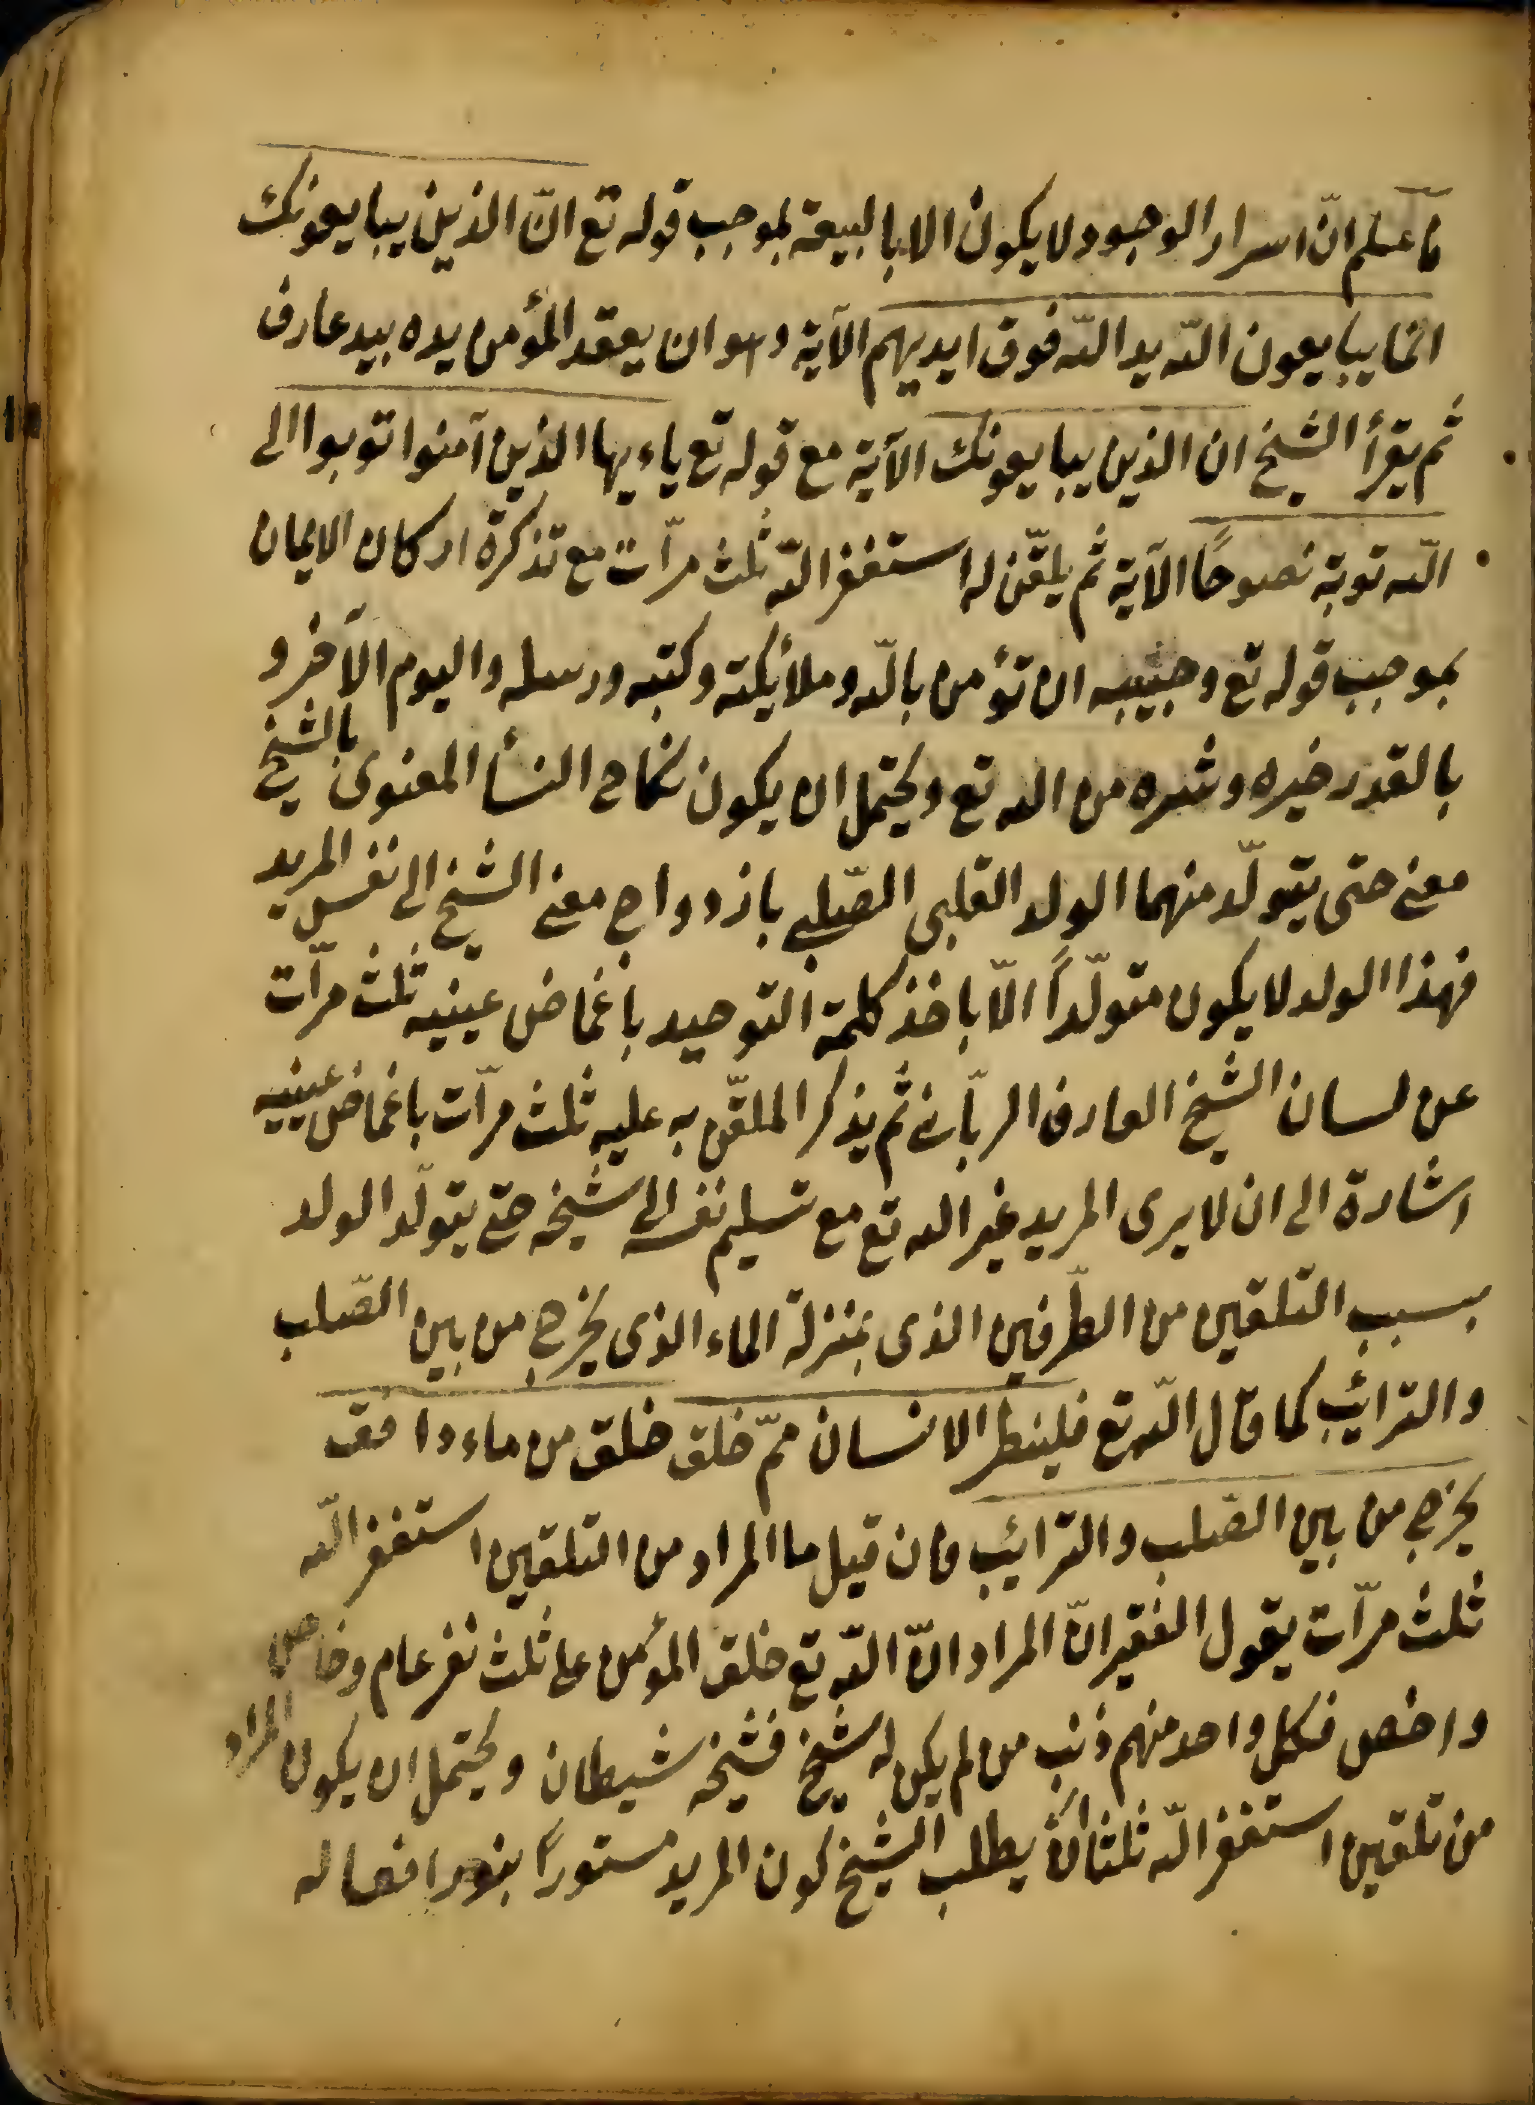 فاعلم انّ اسرار الوجود لا يكون الا بالبيعة بموجب قوله تع انّ الذين يبايعونك
انما يبايعون الله يد الله فوق ايديهم الآية وهو ان يعقد المؤمن يده بيد عارف
ثم يقرأ الشيخ ان الذين يبايعونك الآية مع قوله تع ياءيها الذين آمنوا توبوا الى
الله توبة نصوحًا الآية ثم يلقّن له استغفر الله ثلث مرّات مع تذكرة اركان الايمان
بموجب قوله تع وحبيبه ان تؤمن بالله وملائكته وكتبه ورسله واليوم الآخر و
بالقدر خيره وشره من الله تع ويحتمل ان يكون نكاح النسأ المعنوى بالشيخ
معنى حتى يتولّد منهما الولد القلبى الصّلبى بازدواج معنى الشيخ الى نفس المريد
فهذا الولد لا يكون متولّدًا الّا باخذ كلمة التوحيد باغماض عينيه ثلث مرّات
عن لسان الشيخ العارف الربّانى ثم يذكر الملقّن به عليه ثلث مرّات باغماض عينيه
اشارة الى ان لا يرى المريد غير الله تع مع تسليم نفسه الى شيخه حتى يتولّد الولد
بسبب التلقين من الطّرفين الذى بمنزلة الماء الذى يخرج من بين الصّلب
والترائب كما قال الله تع فلينظر الانسان ممّ خلق خلق من ماء دافق
يخرج من بين الصّلب والترائب فان قيل ما المراد من التلقين استغفر الله
ثلث مرّات يقول الفقير انّ المراد انّ الله تع خلق المؤمن على ثلث نفر عام وخاص
واخص فكل واحد منهم ذنب من لم يكن له شيخ فشيخه شيطان ويحتمل ان يكون المراد
من تلقين استغفر الله ثلثا ان يطلب الشيخ كون المريد مستورًا بنور افعاله